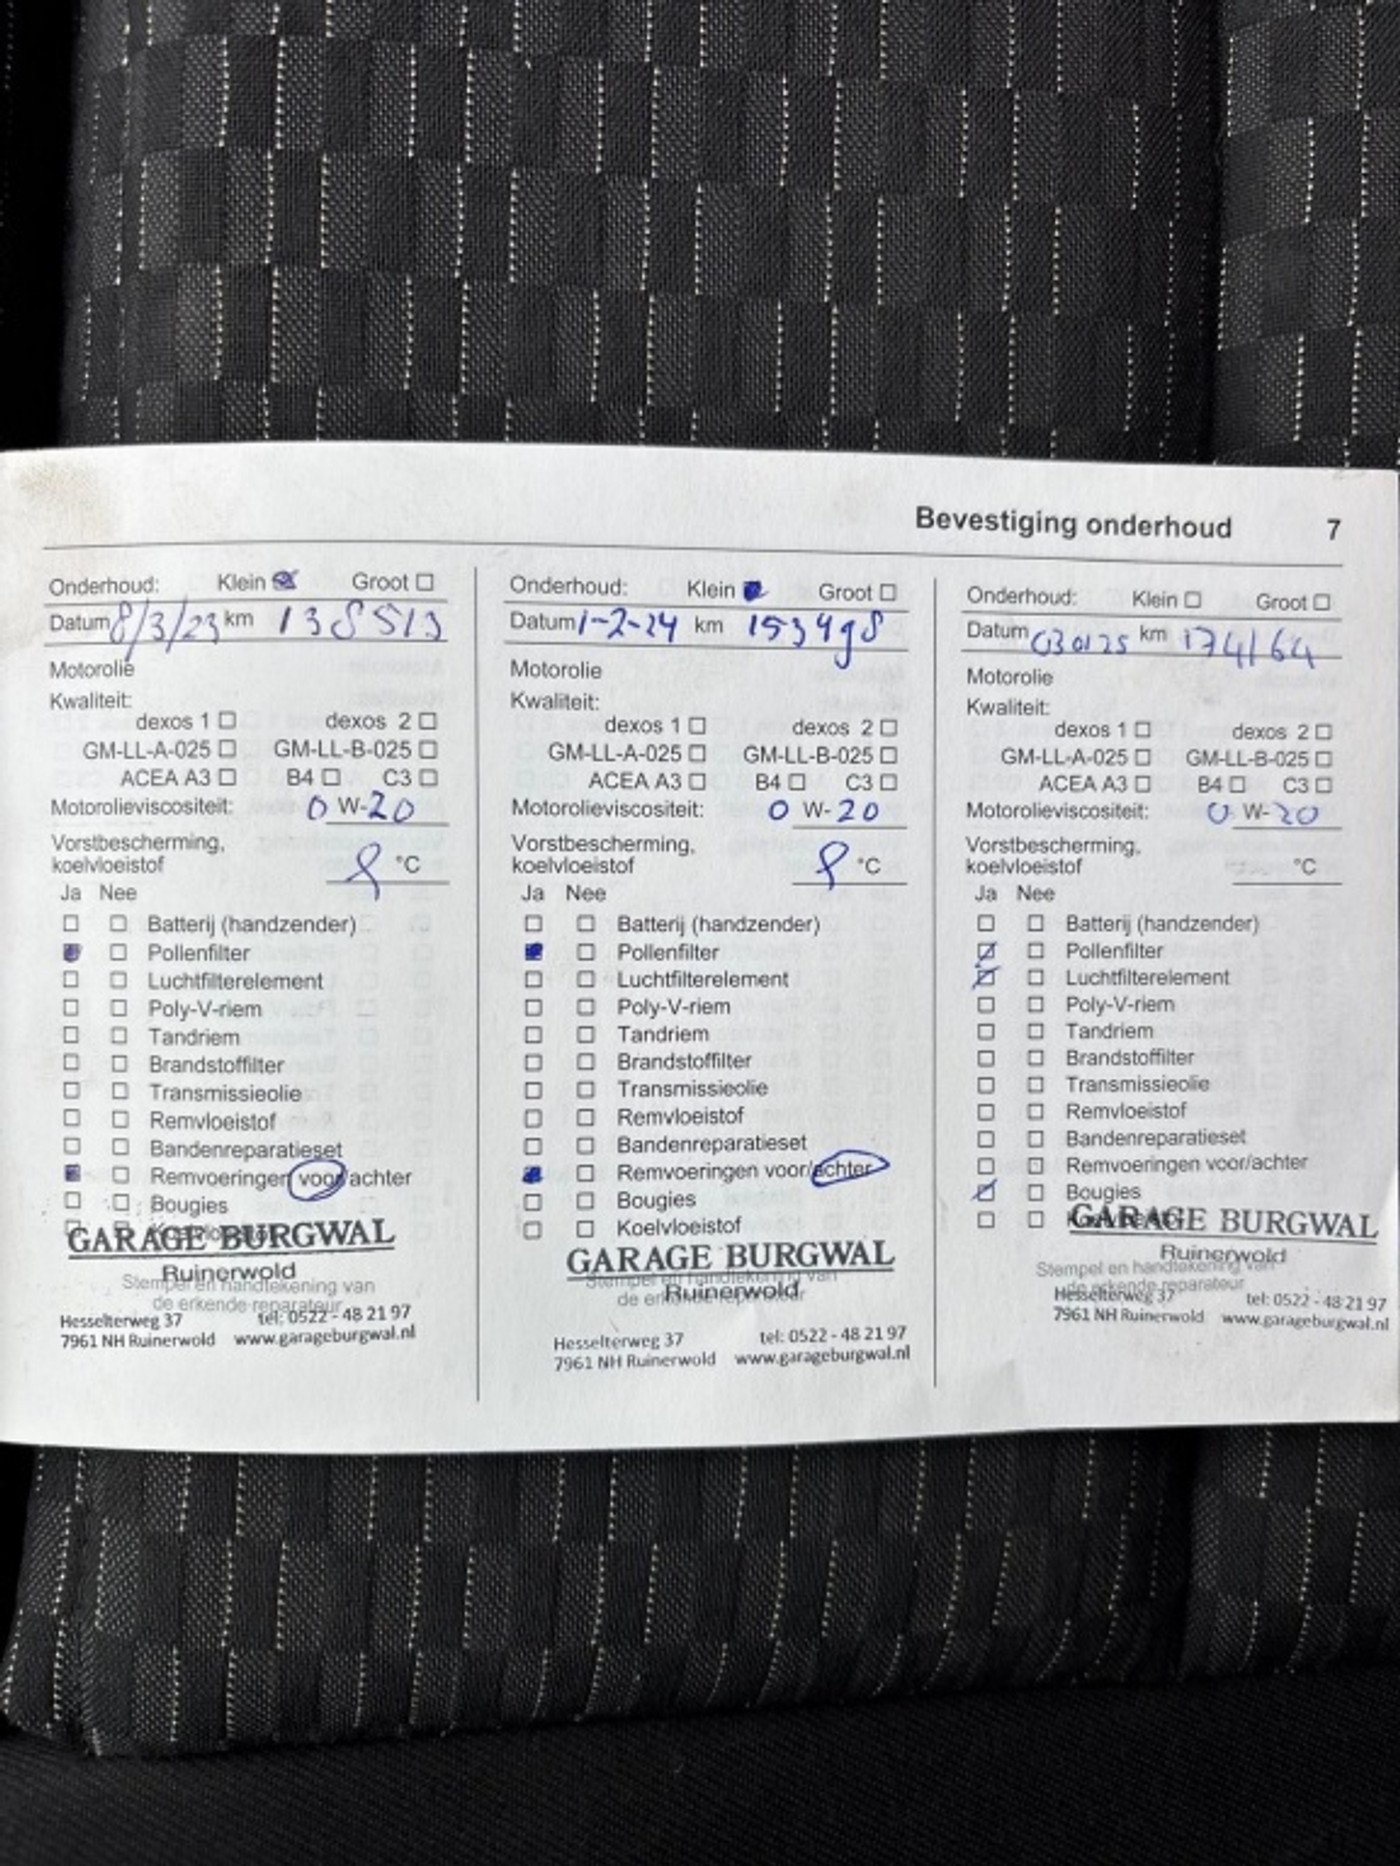 Bevestiging onderhoud 7
Onderhoud: Klein Groot
Datum 8/3/23 km 138513
Motorolie
Kwaliteit:
dexos 1 dexos 2
GM-LL-A-025 GM-LL-B-025
ACEA A3 B4 C3
Motorolieviscositeit: 0 W-20
Vorstbescherming,
koelvloeistof °C
Ja Nee
Batterij (handzender)
Pollenfilter
Luchtfilterelement
Poly-V-riem
Tandriem
Brandstoffilter
Transmissieolie
Remvloeistof
Bandenreparatieset
Remvoeringen voor/achter
Bougies
Koelvloeistof
GARAGE BURGWAL
Ruinerwold
Stempel en handtekening van
de erkende reparateur
Hesselterweg 37 tel: 0522 - 48 21 97
7961 NH Ruinerwold www.garageburgwal.nl
Onderhoud: Klein Groot
Datum 1-2-24 km 153498
Motorolie
Kwaliteit:
dexos 1 dexos 2
GM-LL-A-025 GM-LL-B-025
ACEA A3 B4 C3
Motorolieviscositeit: 0 W-20
Vorstbescherming,
koelvloeistof °C
Ja Nee
Batterij (handzender)
Pollenfilter
Luchtfilterelement
Poly-V-riem
Tandriem
Brandstoffilter
Transmissieolie
Remvloeistof
Bandenreparatieset
Remvoeringen voor/achter
Bougies
Koelvloeistof
GARAGE BURGWAL
Stempel en handtekening van
Ruinerwold
de erkende reparateur
Hesselterweg 37 tel: 0522 - 48 21 97
7961 NH Ruinerwold www.garageburgwal.nl
Onderhoud: Klein Groot
Datum 030125 km 174164
Motorolie
Kwaliteit:
dexos 1 dexos 2
GM-LL-A-025 GM-LL-B-025
ACEA A3 B4 C3
Motorolieviscositeit: 0 W-20
Vorstbescherming,
koelvloeistof °C
Ja Nee
Batterij (handzender)
Pollenfilter
Luchtfilterelement
Poly-V-riem
Tandriem
Brandstoffilter
Transmissieolie
Remvloeistof
Bandenreparatieset
Remvoeringen voor/achter
Bougies
Koelvloeistof
GARAGE BURGWAL
Ruinerwold
Stempel en handtekening van
de erkende reparateur
Hesselterweg 37 tel: 0522 - 48 21 97
7961 NH Ruinerwold www.garageburgwal.nl